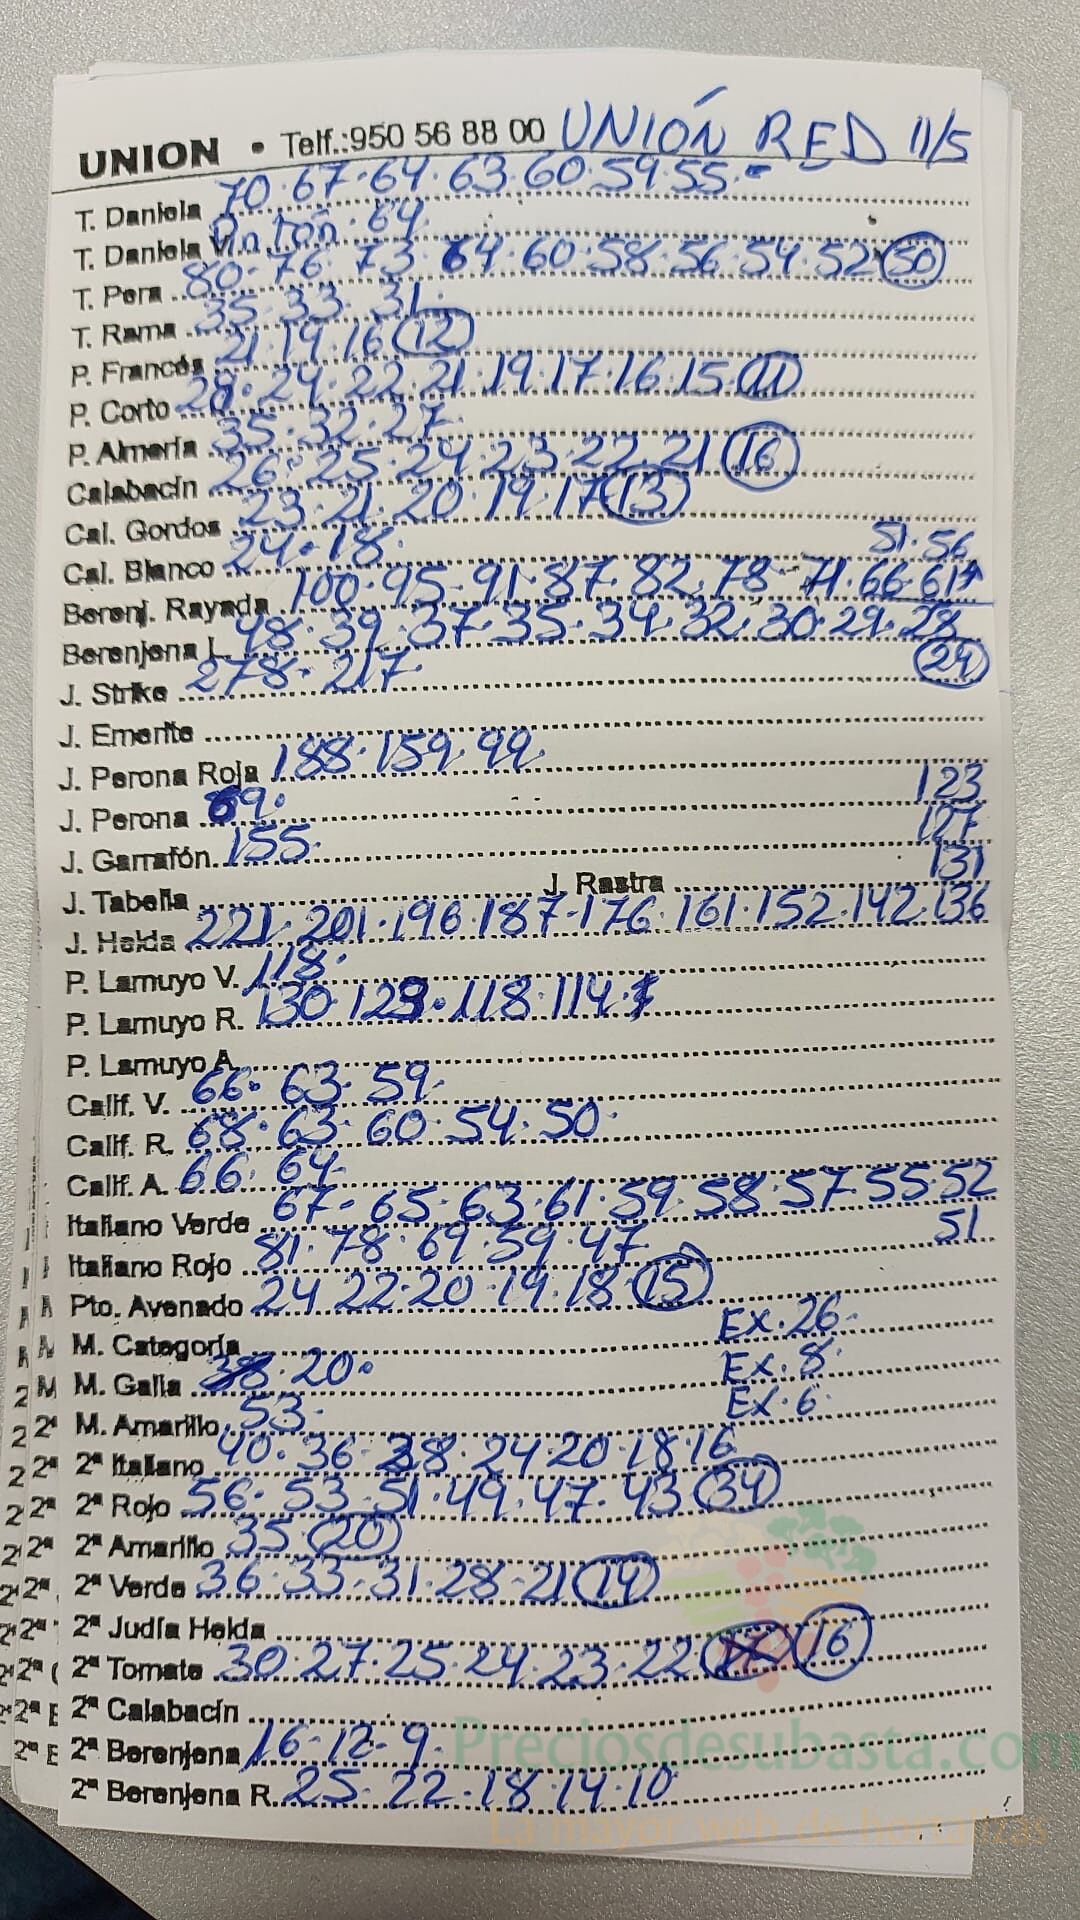 UNION • Telf.:950 56 88 00 UNIÓN RED 11/5
T. Daniela 70·67·64·63·60·59·55·-
T. Daniela V. Pintón·64
T. Pera 80·76·73·64·60·58·56·54·52 50
T. Rama 35·33·31·
P. Francés 21·19·16 12
P. Corto 28·24·22·21·19·17·16·15· 11
P. Almería 35·32·27·
Calabacín 26·25·24·23·22·21 16
Cal. Gordos 23·21·20·19·17 13
Cal. Blanco 24·18· 51·56
Berenj. Rayada 100·95·91·87·82·78·71·66·61
Berenjena L. 48·39·37·35·34·32·30·29·28
24
J. Strike 278·217
J. Emerite
J. Perona Roja 188·159·99
J. Perona 69· 123
J. Garrafón 155· 127
J. Tabella J. Rastra 131
J. Helda 221·201·196·187·176·161·152·142·136
P. Lamuyo V. 118·
P. Lamuyo R. 130·123·118·114·
P. Lamuyo A.
Calif. V. 66·63·59·
Calif. R. 68·63·60·54·50·
Calif. A. 66·64
Italiano Verde 67·65·63·61·59·58·57·55·52
51
Italiano Rojo 81·78·69·59·47
Pto. Avenado 24·22·20·19·18· 15
M. Categoría Ex. 26·
M. Galia 20· Ex. 8·
M. Amarillo 53· Ex. 6·
2ª Italiano 40·36·28·24·20·18·16
2ª Rojo 56·53·51·49·47·43 34
2ª Amarillo 35· 20
2ª Verde 36·33·31·28·21 14
2ª Judía Helda
2ª Tomate 30·27·25·24·23·22 16
2ª Calabacín
2ª Berenjena 16·12·9·
2ª Berenjena R. 25·22·18·14·10
Preciosdesubasta.com
La mayor web de hortalizas